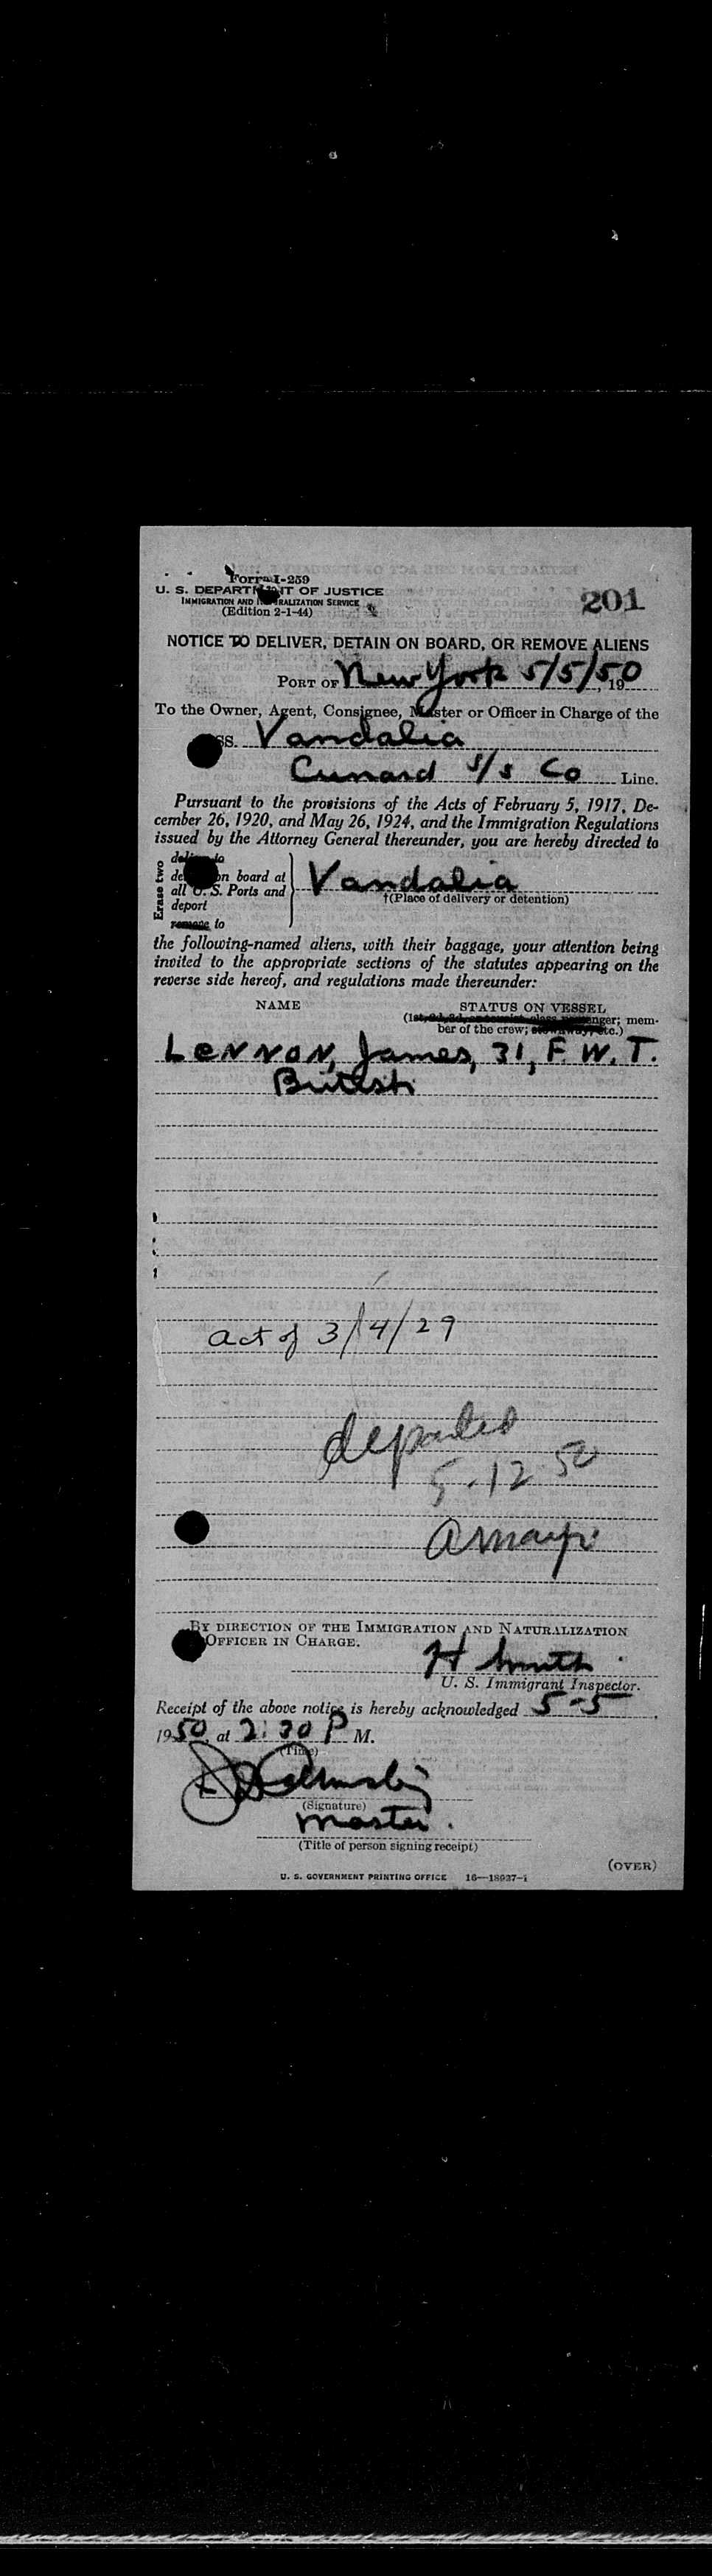 Form I-259
U. S. DEPARTMENT OF JUSTICE
IMMIGRATION AND NATURALIZATION SERVICE
(Edition 2-1-44)
201
NOTICE TO DELIVER, DETAIN ON BOARD, OR REMOVE ALIENS
PORT OF New York 5/5/50, 19
To the Owner, Agent, Consignee, Master or Officer in Charge of the
SS. Vandalia
Cunard S/S Co Line.
Pursuant to the provisions of the Acts of February 5, 1917, De-
cember 26, 1920, and May 26, 1924, and the Immigration Regulations
issued by the Attorney General thereunder, you are hereby directed to
Erase two
deliver to
on board at
all U. S. Ports and
deport
remove to
Vandalia
†(Place of delivery or detention)
the following-named aliens, with their baggage, your attention being
invited to the appropriate sections of the statutes appearing on the
reverse side hereof, and regulations made thereunder:
NAME
STATUS ON VESSEL
(1st, 2d, 3d, or tourist class passenger; mem-
ber of the crew; stowaway, etc.)
LENNON, James, 31, F. W. T.
British
act of 3/4/29
departed
5-12 50
BY DIRECTION OF THE IMMIGRATION AND NATURALIZATION
OFFICER IN CHARGE.
H Smith
U. S. Immigrant Inspector.
Receipt of the above notice is hereby acknowledged 5-5,
1950, at 2:30 P M.
(Time)
(Signature)
Master.
(Title of person signing receipt)
(OVER)
U. S. GOVERNMENT PRINTING OFFICE 16—18037-1